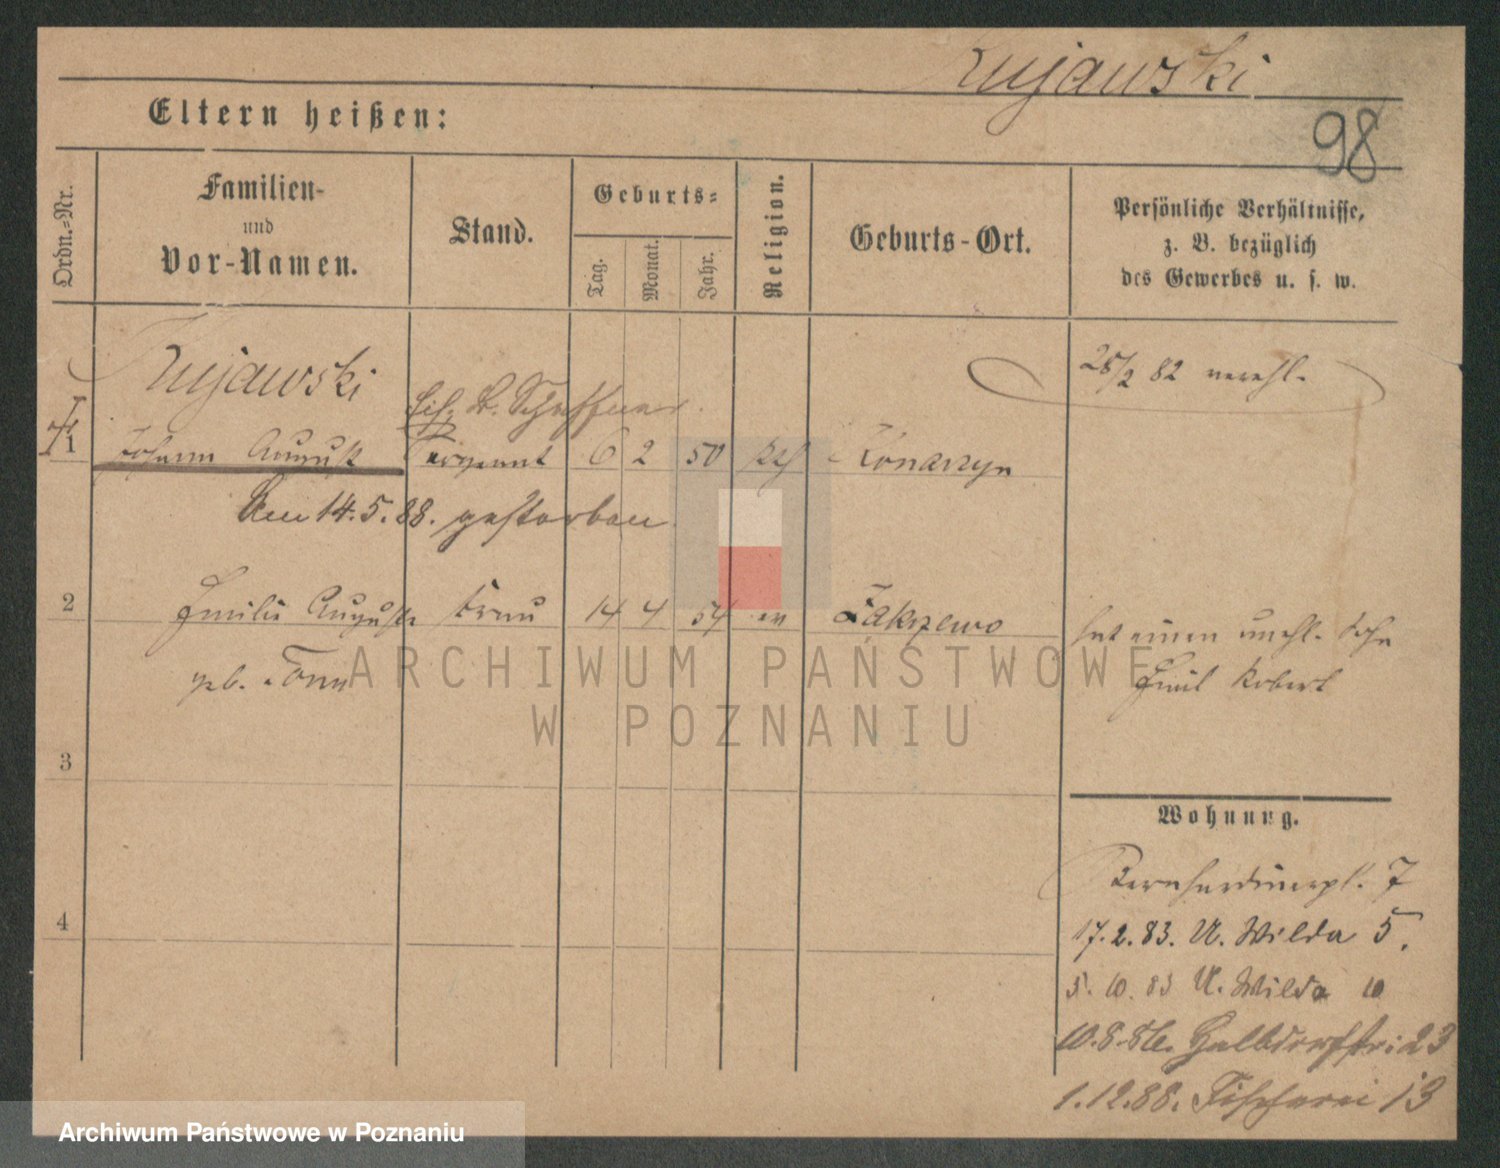 Kujawski
98
Eltern heißen:
Ordn.-Nr.
Familien-
und
Vor-Namen.
Stand.
Geburts-
Tag.
Monat.
Jahr.
Religion.
Geburts-Ort.
Persönliche Verhältnisse,
z. B. bezüglich
des Gewerbes u. s. w.
Kujawski
28/2 82 verehl.
Schaffner
1 Johann August Sergeant 6 2 50 kth Konarzyn
Am 14.5.88. gestorben
2 Emilie Auguste Frau 14 4 54 ev Zakrzewo
hat einen unehl. Sohn
geb. Tonn
Emil Robert
3
Wohnung.
Bernhardinerpl. 7
4
17.2.83. U. Wilda 5.
5.10.83 U. Wilda 10
10.8.86. Halbdorfstr: 23
1.12.88. Fischerei 13
ARCHIWUM PAŃSTWOWE
W POZNANIU
Archiwum Państwowe w Poznaniu